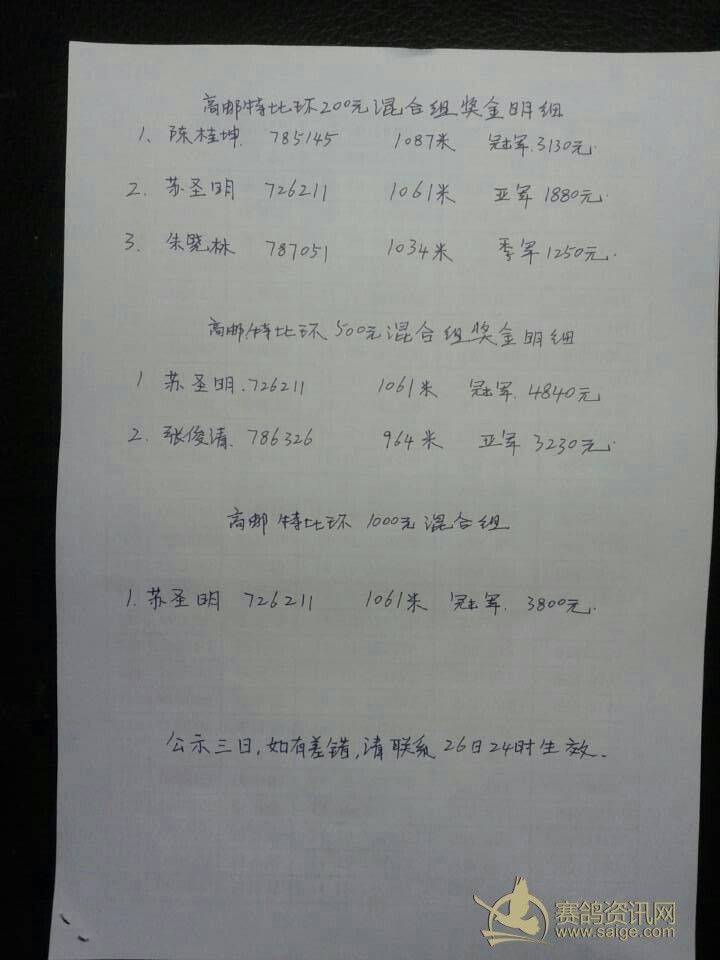 高邮特比环200元混合组奖金明细
1、陈桂坤 785145 1087米 冠军.3130元.
2. 苏圣明 726211 1061米 亚军1880元.
3. 朱晓林 787051 1034米 季军1250元.
高邮特比环500元混合组奖金明细
1 苏圣明.726211 1061米 冠军.4840元
2. 张俊清.786326 964米 亚军3230元.
高邮特比环1000元混合组
1.苏圣明 726211 1061米 冠军.3800元.
公示三日,如有差错,请联系26日24时生效.
赛鸽资讯网
www.saige.com